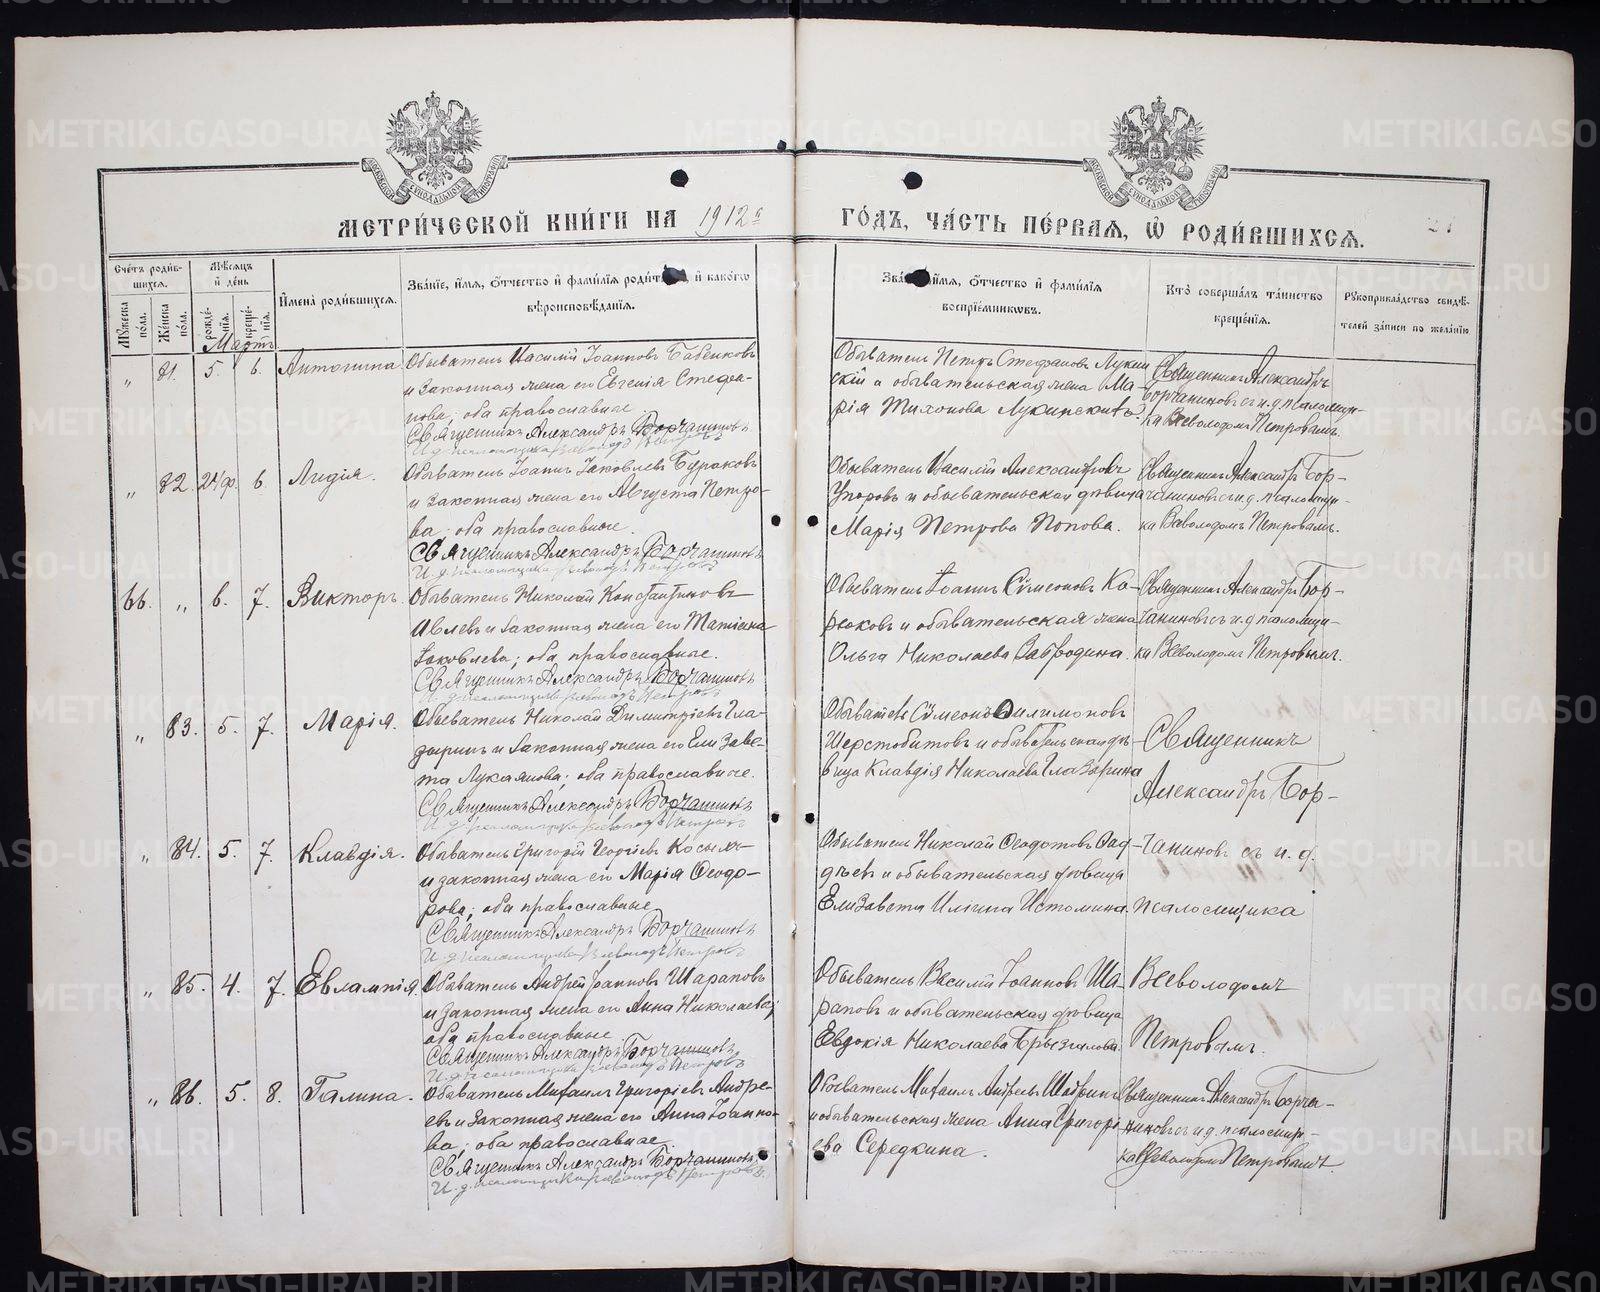 МЕТРИ́ЧЕСКОЙ КНИ́ГИ НА 1912 ГО́ДЪ, ЧА́СТЬ ПЕ́РВАЯ, Ѡ҆ РОДИ́ВШИХСЯ.
Сче́тъ роди́в-
шихся.
Мѣ́сяцъ
и҆ де́нь
Мѹ́жеска по́ла.
Же́нска по́ла.
рожде́-
нїѧ.
креще́-
нїѧ.
И҆мена̀ роди́вшихся.
Зва́нїе, и҆́мя, ѻ҆́тчество и҆ фами́лїя и҆ како́гѡ
вѣроисповѣ́данїя.
и҆́мя, ѻ҆́тчество и҆ фами́лїя
воспрїе́мникѡвъ.
Кто̀ соверша́лъ та́инство
креще́нїя.
Рѹкоприкла́дство свидѣ́-
телей за́писи по жела́нїю
Мартъ
" 81. 5. 6. Антонина
Обыватель Василій Іоанновъ Бабенковъ
и законная жена его Евгенія Стефа-
нова; оба православные
Священникъ Александръ Борчаниновъ
И. д. псаломщика Всеволодъ Петровъ
Обыватель Петръ Стефановъ Лукин
скій и обывательская жена Ма-
рія Тихонова Лукинскихъ.
Священникъ Александръ
Борчаниновъ съ и. д. псаломщи-
ка Всеволодомъ Петровымъ.
" 82. 24ф. 6. Лидія.
Обыватель Іоаннъ Іаковлевъ Бураковъ
и законная жена его Августа Петро-
ва; оба православные.
Священникъ Александръ Борчаниновъ
И. д. псаломщика Всеволодъ Петровъ
Обыватель Василій Александровъ
Упоровъ и обывательская дѣвица
Марія Петрова Попова.
Священникъ Александръ Бор-
чаниновъ съ и. д. псаломщи-
ка Всеволодомъ Петровымъ.
66. " 6. 7. Викторъ.
Обыватель Николай Константиновъ
Авлевъ и законная жена его Татіана
Іаковлева; оба православные.
Священникъ Александръ Борчаниновъ
И. д. псаломщика Всеволодъ Петровъ
Обыватель Іоаннъ Сѵмеоновъ Ко-
и обывательская жена
Ольга Николаева Завродина.
Священникъ Александръ Бор-
чаниновъ съ и. д псаломщи-
ка Всеволодомъ Петровымъ.
" 83. 5. 7. Марія.
Обыватель Николай Димитріевъ Гла-
зыринъ и законная жена его Елизаве-
та Лукіанова; оба православные.
Священникъ Александръ Борчаниновъ
И. д. псаломщика Всеволодъ Петровъ
Обыватель Сѵмеонъ Филимоновъ
Шерстобитовъ и обывательская дѣ-
вица Клавдія Николаева Глазырина
Священникъ
Александръ Бор-
" 84. 5. 7. Клавдія.
Обыватель Григорій Георгіевъ Косыхъ
и законная жена его Марія Ѳеодо-
рова; оба православные.
Священникъ Александръ Борчаниновъ
И. д. псаломщика Всеволодъ Петровъ
Обыватель Николай Ѳеодотовъ Ѳад-
дѣевъ и обывательская дѣвица
Елизавета Ильина Истомина.
чаниновъ съ и. д.
псаломщика
" 85. 4. 7. Евлампія.
Обыватель Андрей Іоанновъ Шараповъ
и законная жена его Анна Николаева;
оба православные
Священникъ Александръ Борчаниновъ
И. д. псаломщика Всеволодъ Петровъ
Обыватель Василій Іоанновъ Ша-
раповъ и обывательская дѣвица
Евдокія Николаева Брызгалова
Всеволодомъ
Петровымъ.
" 86. 5. 8. Галина.
Обыватель Михаилъ Григоріевъ Андре-
евъ и законная жена его Анна Іоанно-
ва; оба православные.
Священникъ Александръ Борчаниновъ
И. д. псаломщика Всеволодъ Петровъ.
Обыватель Михаилъ Андреевъ Шавринъ
и обывательская жена Анна Григорі-
ева Середкина.
Священникъ Александръ Борча-
ниновъ съ и. д. псаломщи-
ка Всеволодомъ Петровымъ.
METRIKI.GASO-URAL.RU